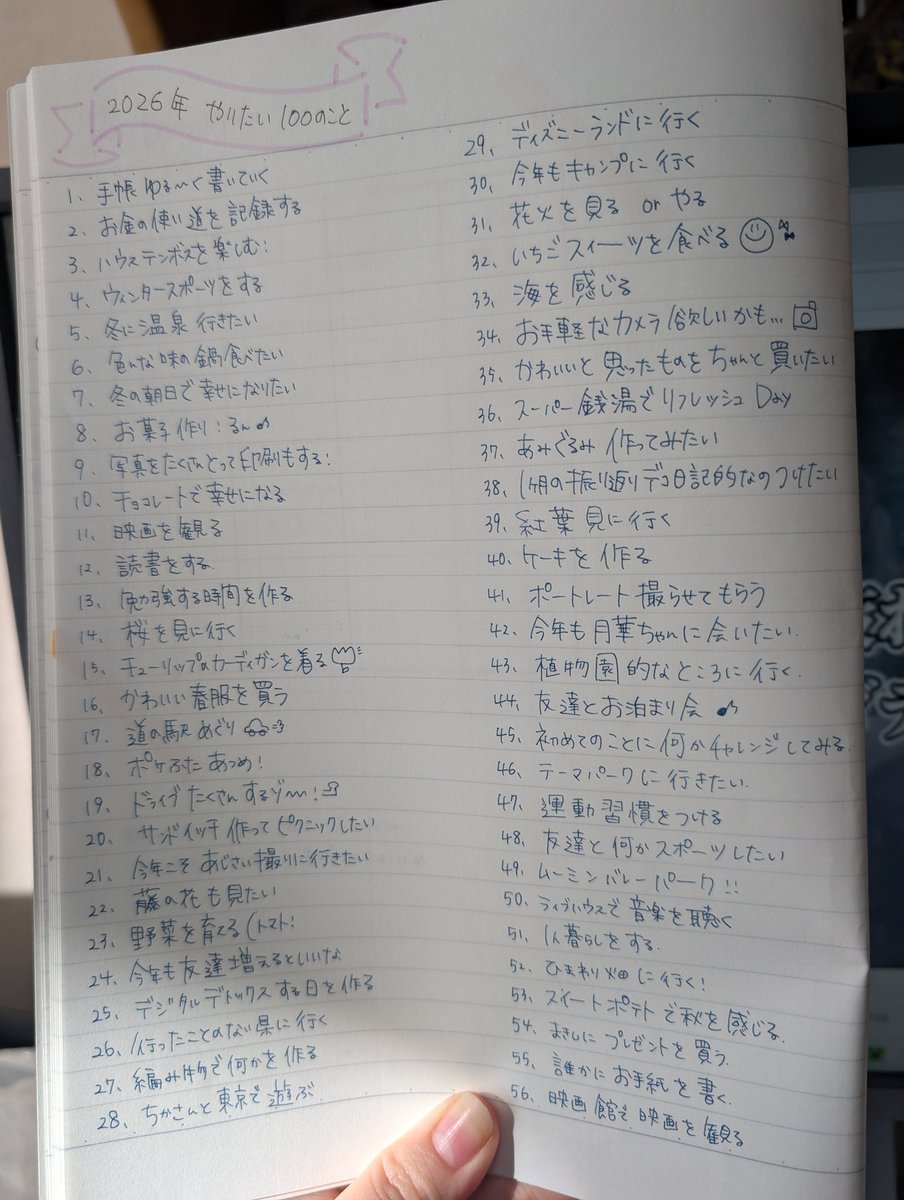 2026年 やりたい100のこと
1、手帳ゆる〜く書いていく
2、お金の使い道を記録する
3、ハウステンボスを楽しむ!
4、ウィンタースポーツをする
5、冬に温泉行きたい
6、色んな味の鍋食べたい
7、冬の朝日で幸せになりたい
8、お菓子作り!るん♪
9、写真をたくさんとって印刷もする!
10、チョコレートで幸せになる
11、映画を観る
12、読書をする.
13、勉強する時間を作る
14、桜を見に行く
15、チューリップのカーディガンを着る
16、かわいい春服を買う
17、道の駅めぐり
18、ポケふたあつめ!
19、ドライブたくさんするゾ〜!
20、サンドイッチ作ってピクニックしたい
21、今年こそあじさい撮りに行きたい
22、藤の花も見たい
23、野菜を育てる(トマト!
24、今年も友達増えるといいな
25、デジタルデトックスする日を作る
26、行ったことのない県に行く
27、編み物で何かを作る
28、ちかさんと東京で遊ぶ
29、ディズニーランドに行く
30、今年もキャンプに行く
31、花火を見る or やる
32、いちごスイーツを食べる
33、海を感じる
34、お手軽なカメラ欲しいかも...
35、かわいいと思ったものをちゃんと買いたい
36、スーパー銭湯でリフレッシュDay
37、あみぐるみ作ってみたい
38、1ヶ月の振り返りデコ日記的なのつけたい
39、紅葉見に行く
40、ケーキを作る
41、ポートレート撮らせてもらう
42、今年も月華ちゃんに会いたい.
43、植物園的なところに行く.
44、友達とお泊まり会♪
45、初めてのことに何かチャレンジしてみる.
46、テーマパークに行きたい.
47、運動習慣をつける
48、友達と何かスポーツしたい
49、ムーミンバレーパーク!!
50、ライブハウスで音楽を聴く
51、1人暮らしをする.
52、ひまわり畑に行く!
53、スイートポテトで秋を感じる.
54、まさしにプレゼントを買う.
55、誰かにお手紙を書く.
56、映画館で映画を観る